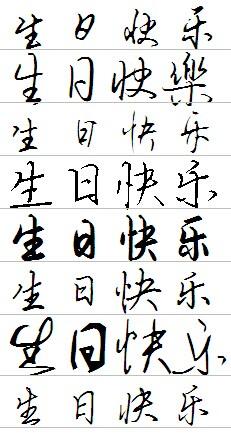 生日快乐
生日快樂
生日快乐
生日快乐
生日快乐
生日快乐
生日快乐
生日快乐